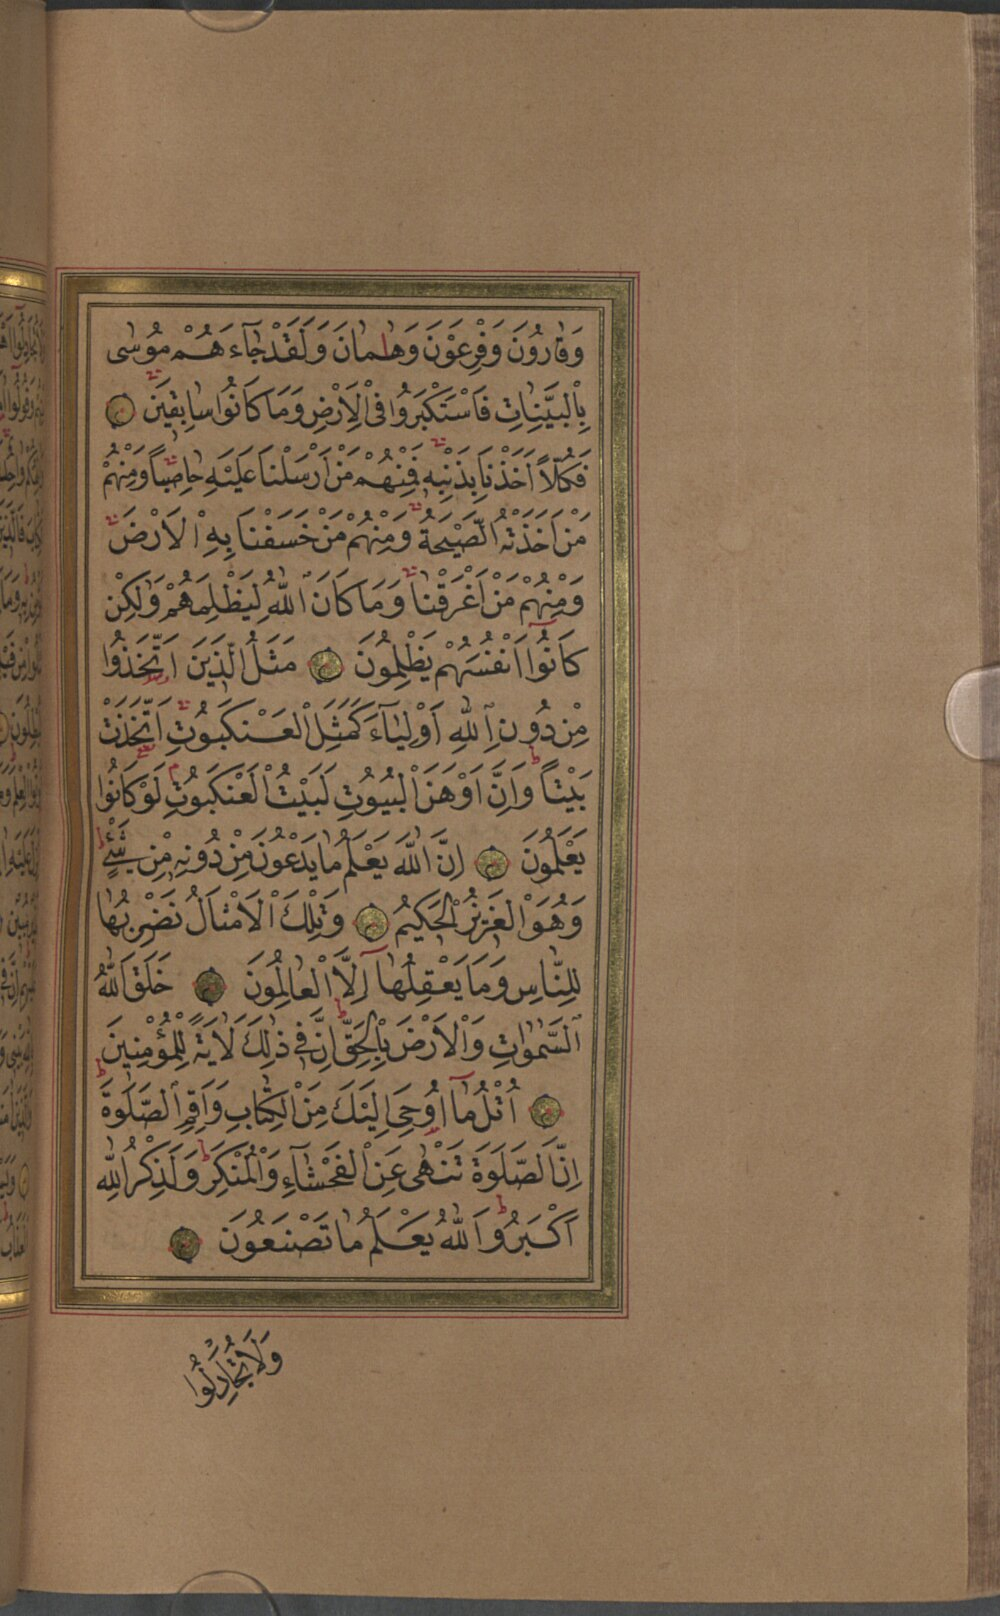 وَقَارُونَ وَفِرْعَوْنَ وَهَامَانَ وَلَقَدْ جَآءَهُمْ مُوسٰى
بِالْبَيِّنَاتِ فَاسْتَكْبَرُوا فِى الْاَرْضِ وَمَا كَانُوا سَابِقِينَ
فَكُلًّا اَخَذْنَا بِذَنْبِهِ فَمِنْهُمْ مَنْ اَرْسَلْنَا عَلَيْهِ حَاصِبًا وَمِنْهُمْ
مَنْ اَخَذَتْهُ الصَّيْحَةُ وَمِنْهُمْ مَنْ خَسَفْنَا بِهِ الْاَرْضَ
وَمِنْهُمْ مَنْ اَغْرَقْنَا وَمَا كَانَ اللّٰهُ لِيَظْلِمَهُمْ وَلٰكِنْ
كَانُوا اَنْفُسَهُمْ يَظْلِمُونَ مَثَلُ الَّذِينَ اتَّخَذُوا
مِنْ دُونِ اللّٰهِ اَوْلِيَآءَ كَمَثَلِ الْعَنْكَبُوتِ اتَّخَذَتْ
بَيْتًا وَاِنَّ اَوْهَنَ الْبُيُوتِ لَبَيْتُ الْعَنْكَبُوتِ لَوْ كَانُوا
يَعْلَمُونَ اِنَّ اللّٰهَ يَعْلَمُ مَا يَدْعُونَ مِنْ دُونِهِ مِنْ شَىْءٍ
وَهُوَ الْعَزِيزُ الْحَكِيمُ وَتِلْكَ الْاَمْثَالُ نَضْرِبُهَا
لِلنَّاسِ وَمَا يَعْقِلُهَا اِلَّا الْعَالِمُونَ خَلَقَ اللّٰهُ
السَّمٰوَاتِ وَالْاَرْضَ بِالْحَقِّ اِنَّ فِى ذٰلِكَ لَاٰيَةً لِلْمُؤْمِنِينَ
اُتْلُ مَآ اُوحِىَ اِلَيْكَ مِنَ الْكِتَابِ وَاَقِمِ الصَّلٰوةَ
اِنَّ الصَّلٰوةَ تَنْهٰى عَنِ الْفَحْشَآءِ وَالْمُنْكَرِ وَلَذِكْرُ اللّٰهِ
اَكْبَرُ وَاللّٰهُ يَعْلَمُ مَا تَصْنَعُونَ
وَلَا تُجَادِلُوا